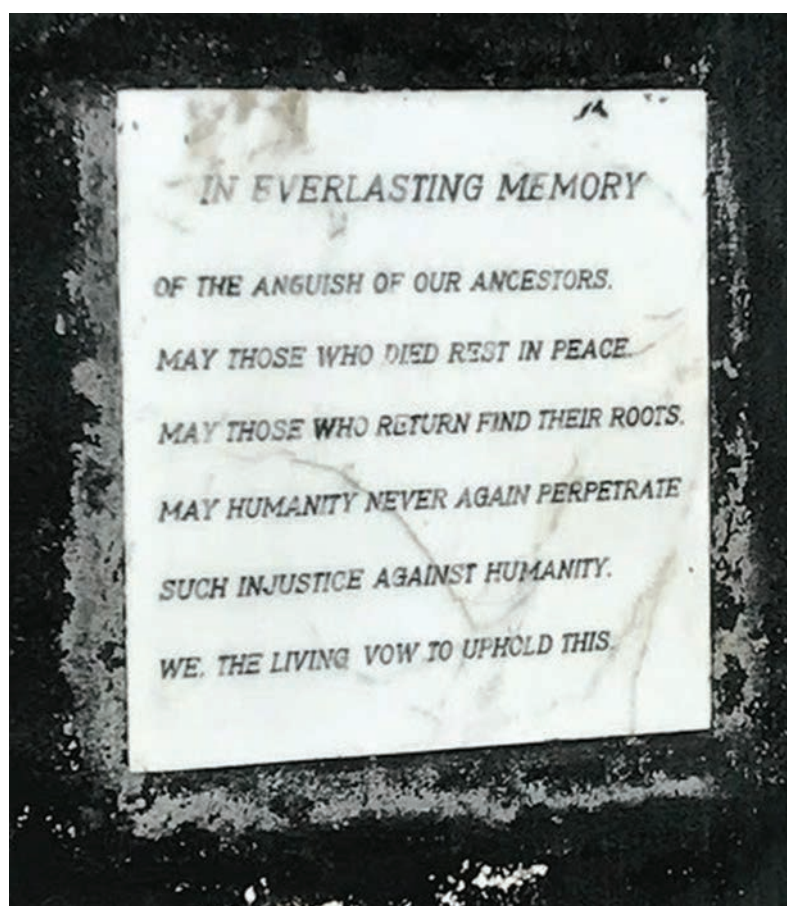 IN EVERLASTING MEMORY
OF THE ANGUISH OF OUR ANCESTORS.
MAY THOSE WHO DIED REST IN PEACE.
MAY THOSE WHO RETURN FIND THEIR ROOTS.
MAY HUMANITY NEVER AGAIN PERPETRATE
SUCH INJUSTICE AGAINST HUMANITY.
WE, THE LIVING VOW TO UPHOLD THIS.